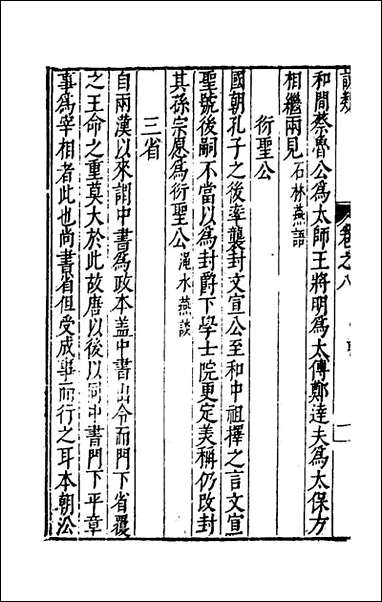 和間蔡魯公為太師王將明為太傅鄭達夫為太保方
相繼兩見石林燕語
衍聖公
國朝孔子之後率襲封文宣公至和中祖擇之言文宣
聖號後嗣不當以為封爵下學士院更定美稱仍改封
其孫宗愿為衍聖公澠水燕談
三省
自兩漢以來謂中書為政本蓋中書出令而門下省覆
之王命之重莫大於此故唐以後以同中書門下平章
事為宰相者此也尚書省但受成事而行之耳本朝㳂
卷之八